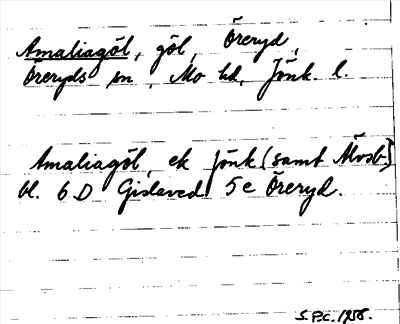 Amaliagöl, göl, Öreryd,
Öreryds sn, Mo hd, Jönk. l.
Amaliagöl, ek Jönk (samt Älvsb)
bl. 6 D Gislaved 5 e Öreryd.
S.P.C. 1958.